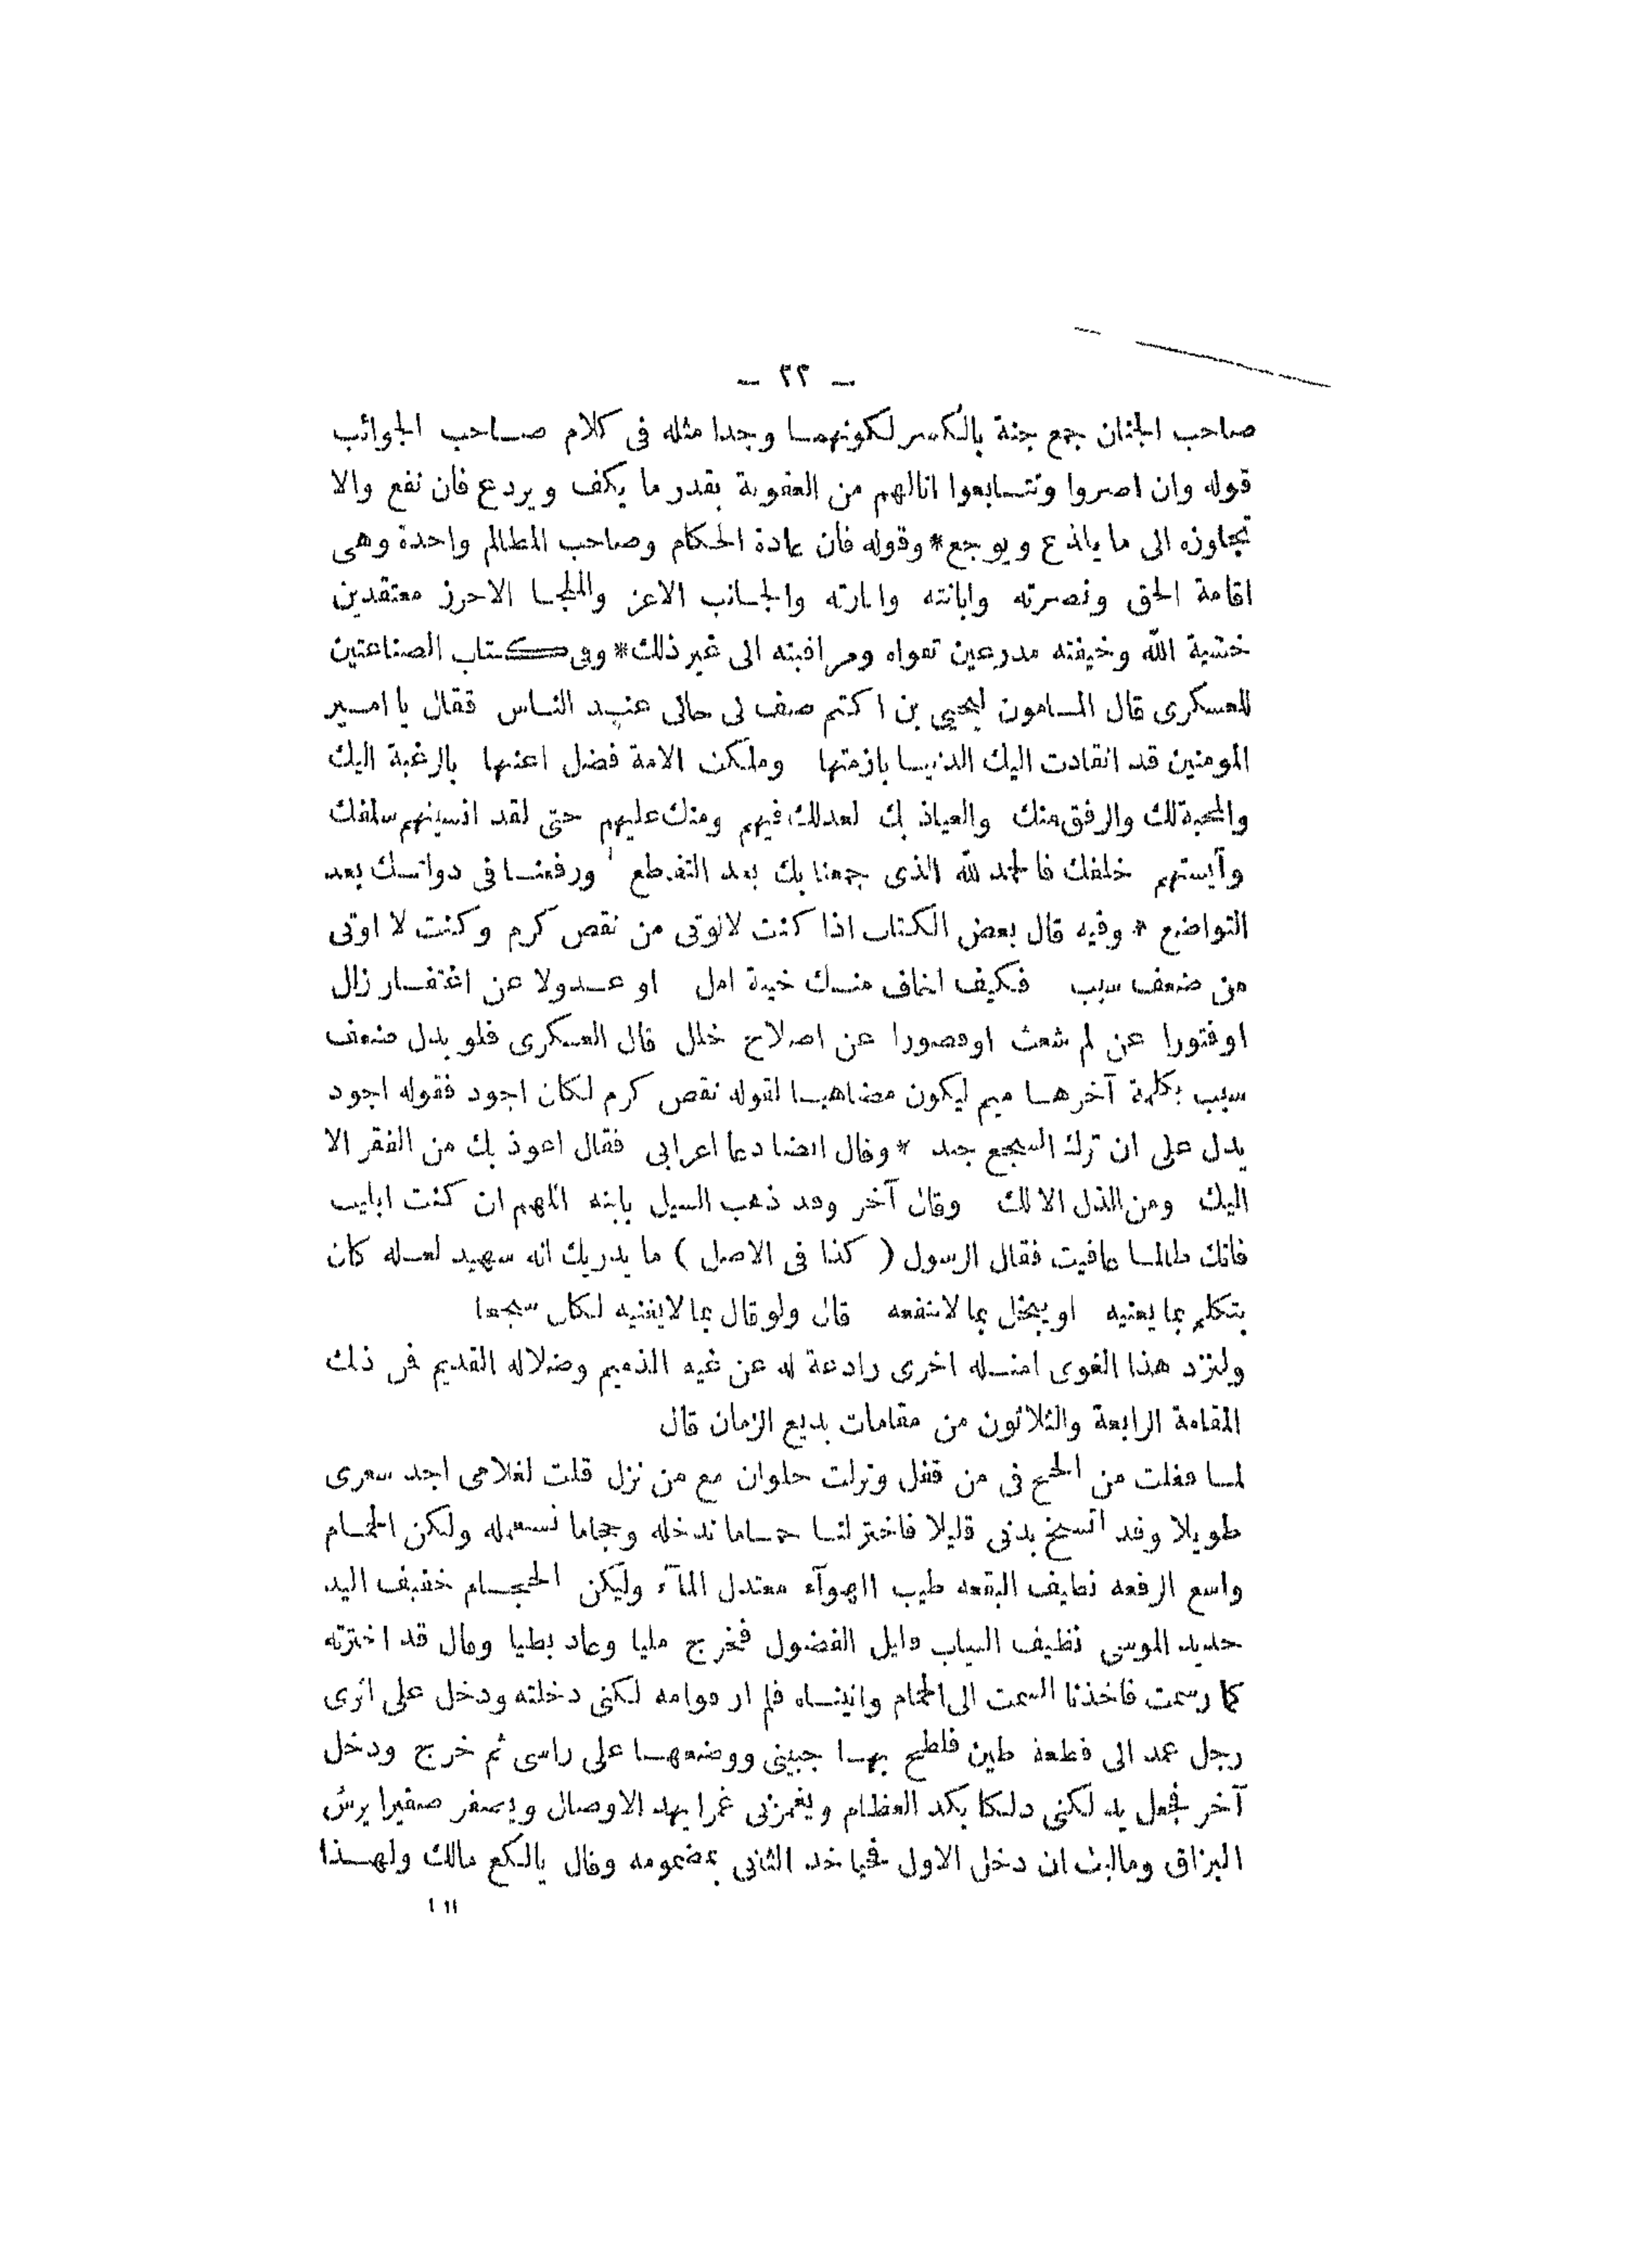 – ٢٣ –
صاحب الجنان جمع جنة بالكسر لكونهما وجدا مثله فى كلام صاحب الجوائب
قوله وان اصروا وتتابعوا انالهم من العقوبة بقدر ما يكف ويردع فان نفع والا
تجاوزه الى ما يلذع ويوجع * وقوله فان عادة الحكام وصاحب المظالم واحدة وهى
اقامة الحق ونصرته وابانته وانارته والجانب الاعز والملجا الاحرز معتقدين
خشية الله وخيفته مدرعين تقواه ومراقبته الى غير ذلك * وفى كتاب الصناعتين
للعسكرى قال المامون ليحيى بن اكتم صف لى حالى عند الناس فقال يا امير
المومنين قد انقادت اليك الدنيا بازمتها وملكت الامة فضل اعنها بالرغبة اليك
والمحبة لك والرفق منك والعياذ بك لعدلك فيهم ومنك عليهم حتى لقد انسيتهم سلفك
وآيستهم خلفك فالحمد لله الذى جمعنا بك بعد التقطع ورفعنا فى دولتك بعد
التواضع * وفيه قال بعض الكتاب اذا كنت لا توتى من نقص كرم وكنت لا اوتى
من ضعف سبب فكيف اخاف منك خيبة امل او عدولا عن اغتفار زلل
او فتورا عن لم شعث او قصورا عن اصلاح خلل قال العسكرى فلو بدل ضعف
سبب بكلمة آخرها ميم ليكون مضاهيا لقوله نقص كرم لكان اجود فقوله اجود
يدل على ان ترك السجع جيد * وقال ايضا دعا اعرابى فقال اعوذ بك من الفقر الا
اليك ومن الذل الا لك وقال آخر وقد ذهب السيل بابنه اللهم ان كنت ابليت
فانك طالما عافيت فقال الرسول ( كذا فى الاصل ) ما يدريك انه شهيد لعله كان
يتكلم بما يعنيه او يبخل بما لا ينفعه قال ولو قال بما لا يغنيه لكان سجعا
ولنزد هذا الغوى امثله اخرى رادعة له عن غيه الذميم وضلاله القديم فمن ذلك
المقامة الرابعة والثلاثون من مقامات بديع الزمان قال
لما قفلت من الحج فى من قفل ونزلت حلوان مع من نزل قلت لغلامى اجد شعرى
طويلا وقد اتسخ بدنى قليلا فاختر لنا حماما ندخله وحجاما نستعمله وليكن الحمام
واسع الرقعه نظيف البقعه طيب الهوآء معتدل المآء وليكن الحجام خفيف اليد
حديد الموسى نظيف الثياب قليل الفضول فخرج مليا وعاد بطيا وقال قد اخترته
كما رسمت فاخذنا السمت الى الحمام واتيناه فلم ار قوامه لكنى دخلته ودخل على اثرى
رجل عمد الى قطعة طين فلطخ بها جبينى ووضعها على راسى ثم خرج ودخل
آخر فجعل يدلكنى دلكا يكد العظام ويغمزنى غمزا يهد الاوصال ويصفر صفيرا يرش
البزاق وما لبث ان دخل الاول فحيا خد الثانى بمضمومه وقال يا لكع مالك ولهذا